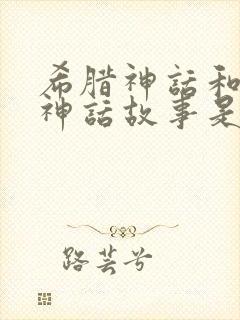 希腊神话和
神话故事是
路芸兮